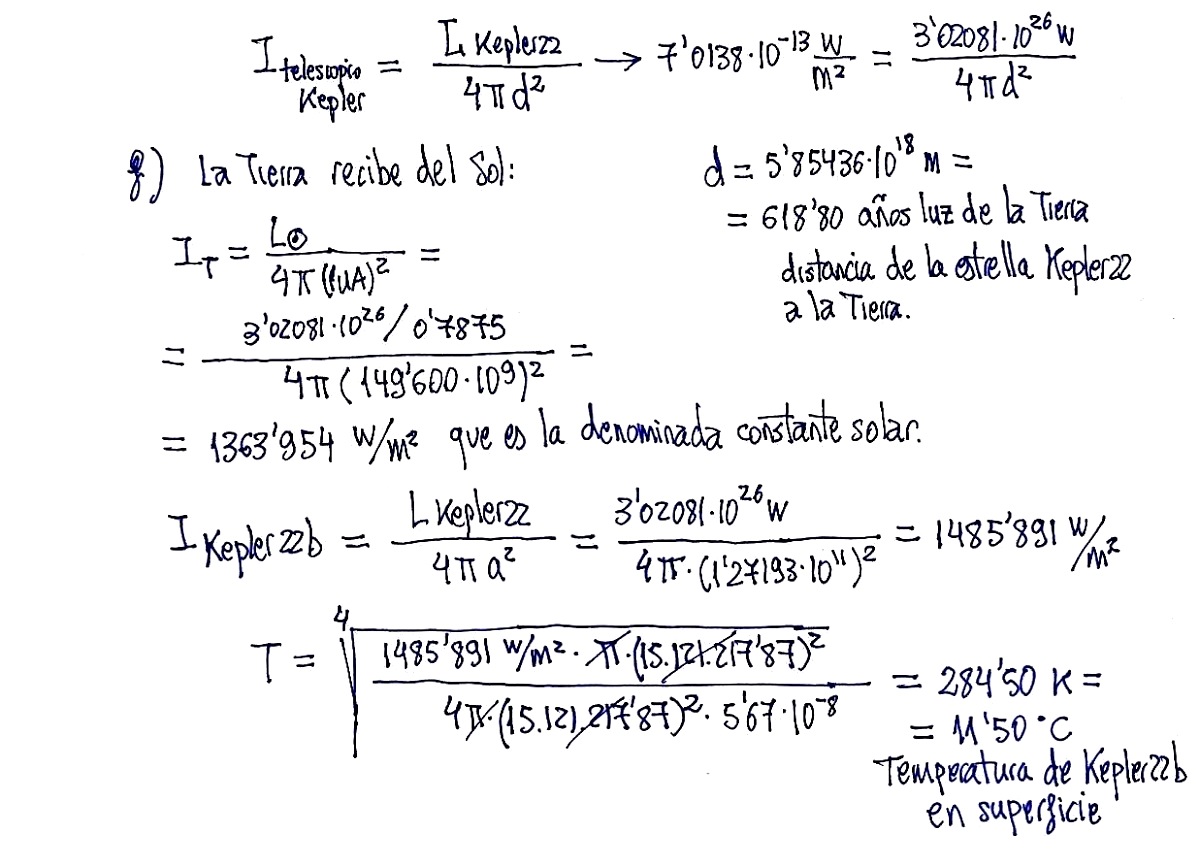 I telescopio Kepler = L Kepler22 / 4πd² → 7'0138·10⁻¹³ W/m² = 3'02081·10²⁶ W / 4πd²
g) La Tierra recibe del Sol:
d = 5'85436·10¹⁸ m =
= 618'80 años luz de la Tierra
distancia de la estrella Kepler22
a la Tierra.
I_T = L☉ / 4π(1UA)² =
= 3'02081·10²⁶ / 0'7875 / 4π(149'600·10⁹)² =
= 1363'954 W/m² que es la denominada constante solar.
I Kepler22b = L Kepler22 / 4πa² = 3'02081·10²⁶ W / 4π·(1'27193·10¹¹)² = 1485'891 W/m²
T = ⁴√(1485'891 W/m² · π·(15.121.217'87)² / 4π·(15.121.217'87)² · 5'67·10⁻⁸) = 284'50 K =
= 11'50 °C
Temperatura de Kepler22b
en superficie